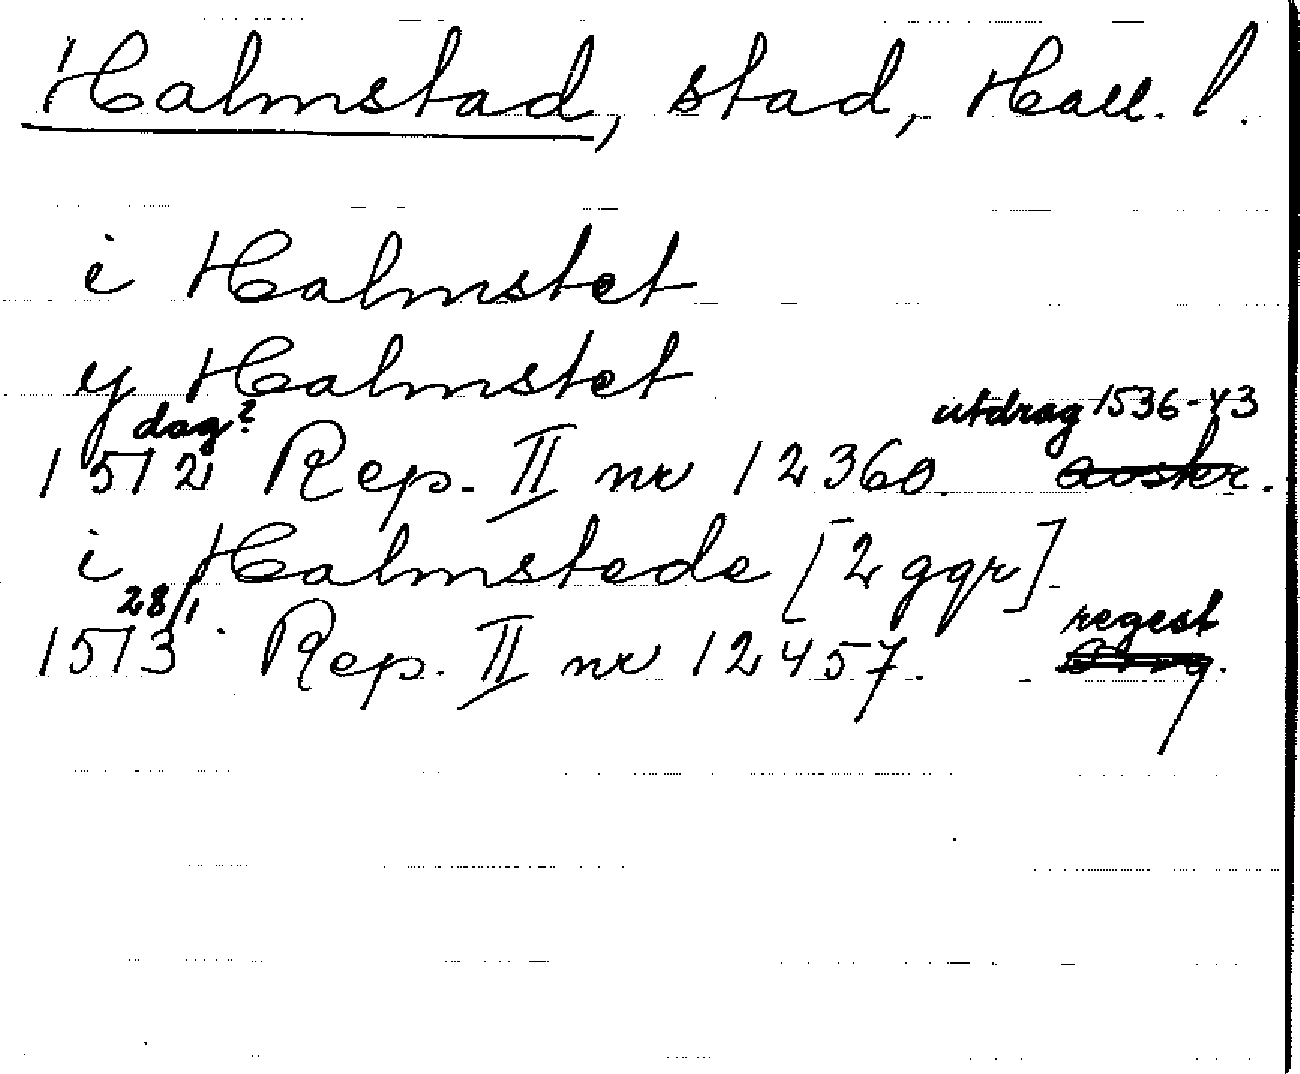 Halmstad, stad, Hall. l.
i Halmstet
y Halmstet
dag? utdrag 1536-43
1512 Rep. II nr 12360.
i Halmstede [2 ggr].
28/1 regest
1513. Rep. II nr 12457.